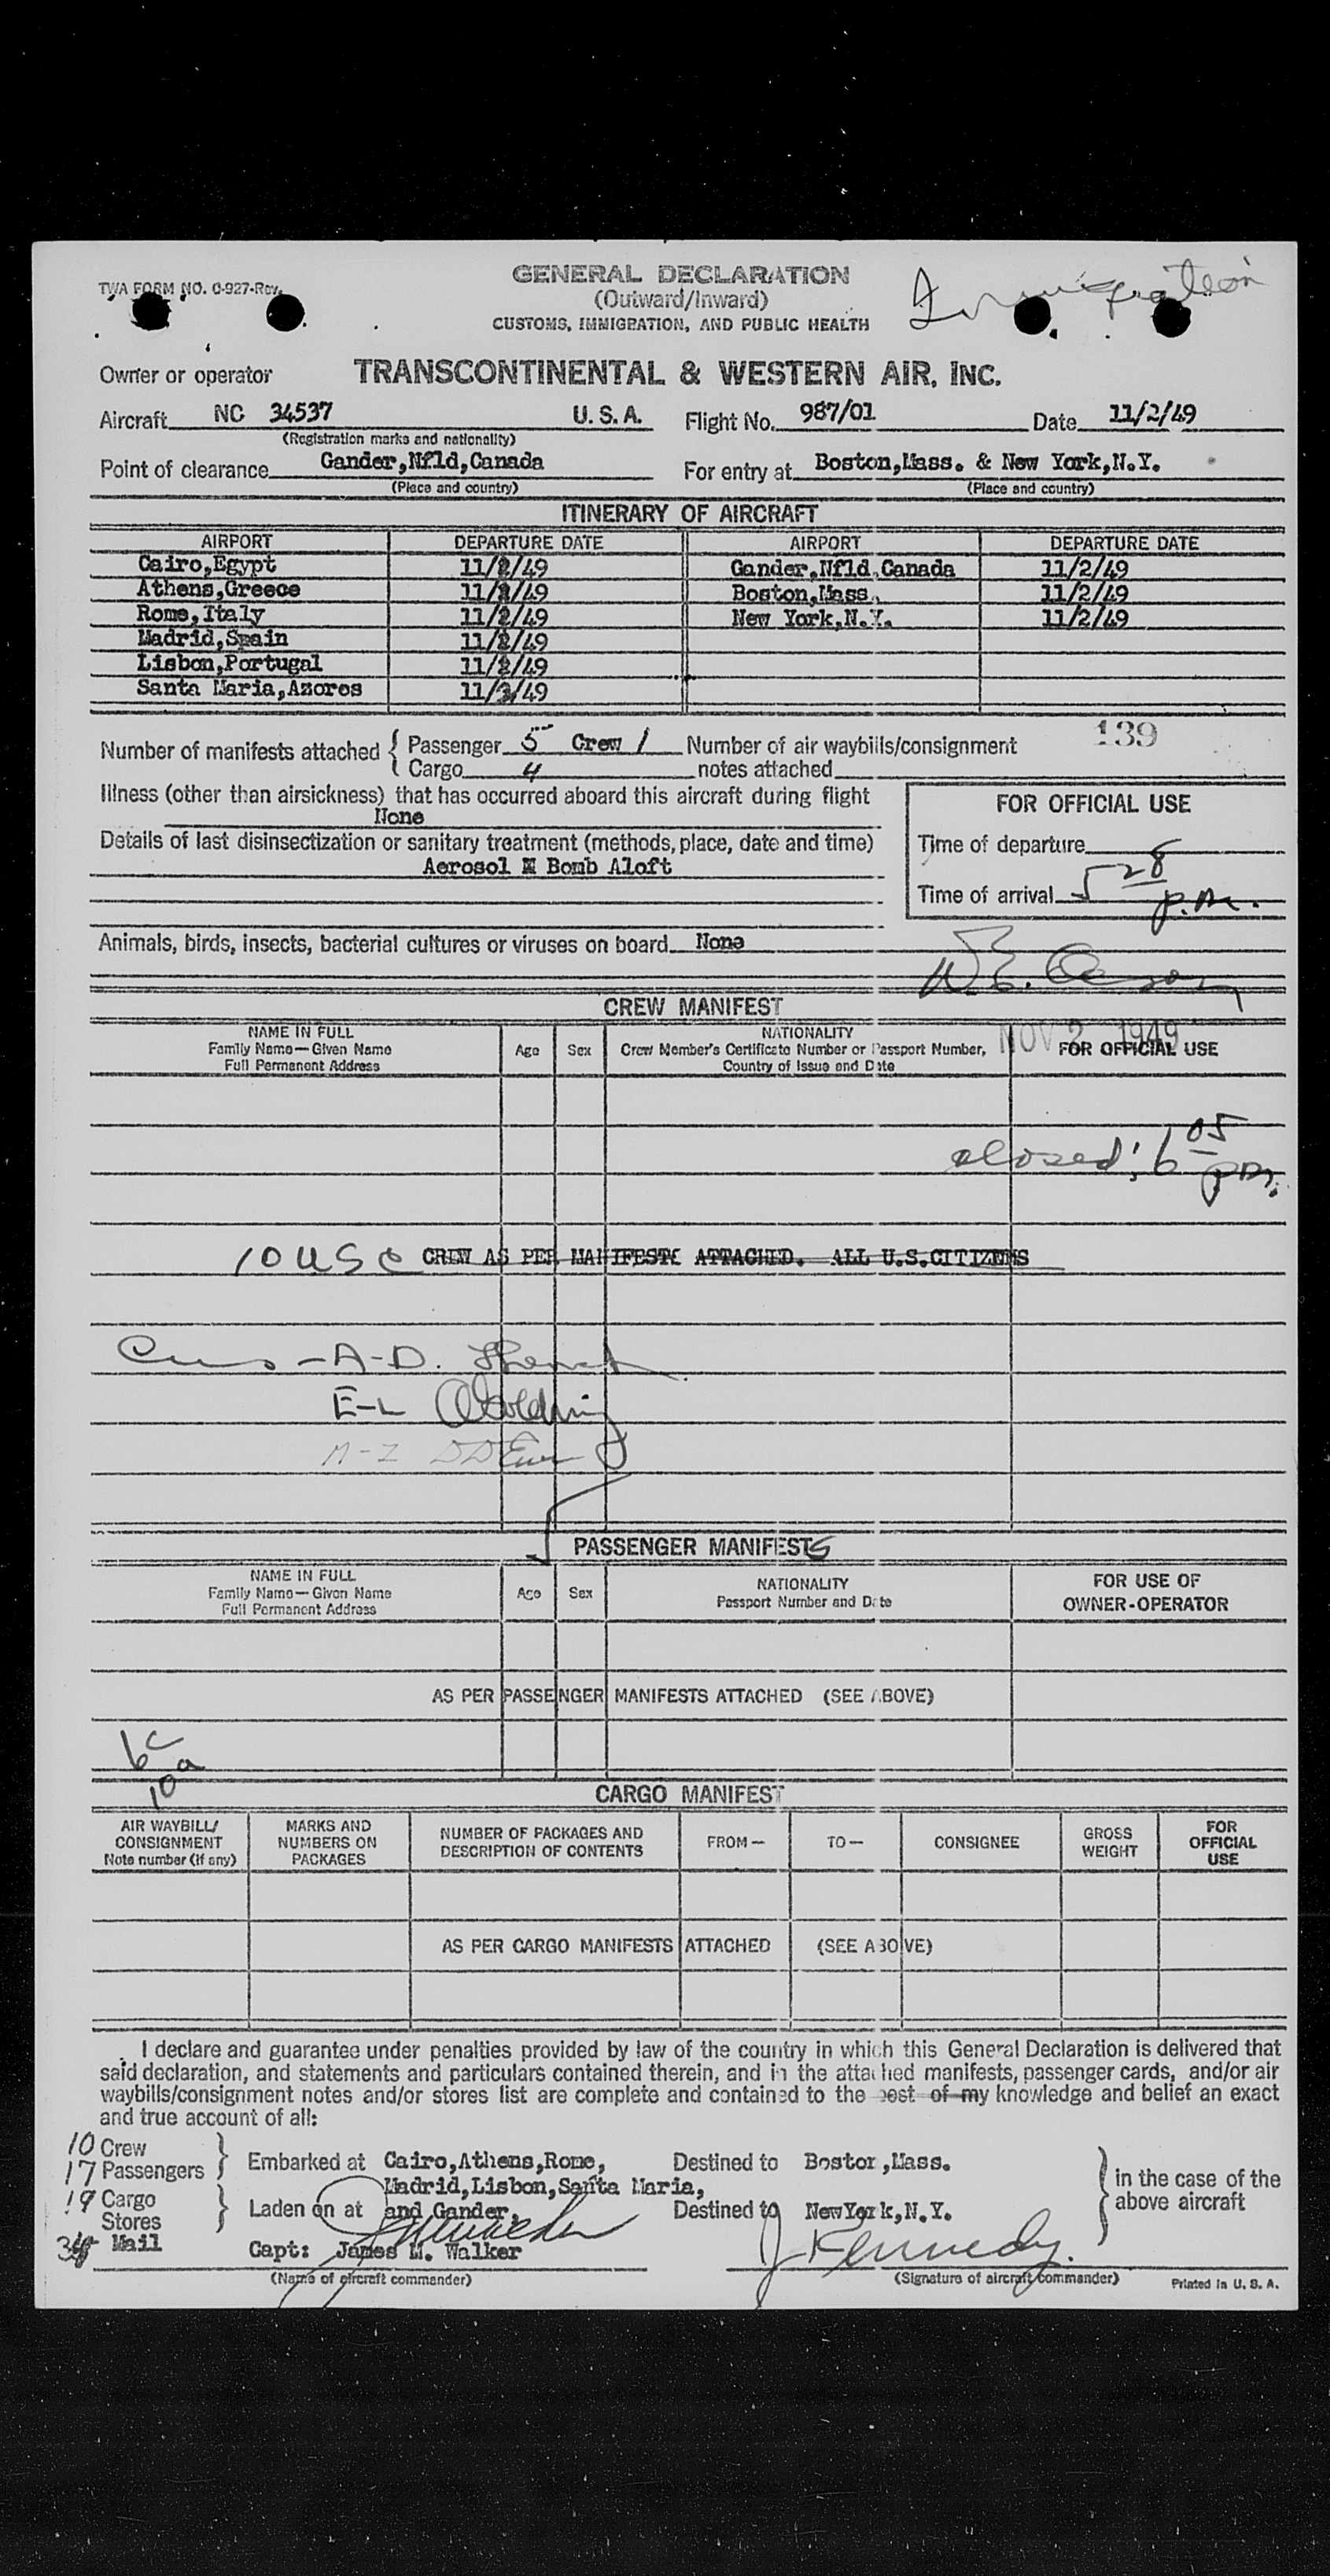 TWA FORM NO. O-927-Rev.
GENERAL DECLARATION
(Outward/Inward)
CUSTOMS, IMMIGRATION, AND PUBLIC HEALTH
Immigration
Owner or operator TRANSCONTINENTAL & WESTERN AIR, INC.
Aircraft NC 34537 U.S.A. Flight No. 987/01 Date 11/2/49
(Registration marks and nationality)
Point of clearance Gander,Nfld,Canada For entry at Boston,Mass. & New York,N.Y.
(Place and country) (Place and country)
ITINERARY OF AIRCRAFT
AIRPORT DEPARTURE DATE AIRPORT DEPARTURE DATE
Cairo,Egypt 11/2/49 Gander,Nfld,Canada 11/2/49
Athens,Greece 11/2/49 Boston,Mass. 11/2/49
Rome,Italy 11/2/49 New York,N.Y. 11/2/49
Madrid,Spain 11/2/49
Lisbon,Portugal 11/2/49
Santa Maria,Azores 11/3/49
139
Number of manifests attached { Passenger 5 Crew 1 Number of air waybills/consignment
Cargo 4 notes attached
Illness (other than airsickness) that has occurred aboard this aircraft during flight
None
Details of last disinsectization or sanitary treatment (methods, place, date and time)
Aerosol Bomb Aloft
FOR OFFICIAL USE
Time of departure
Time of arrival 5 28 p.m.
Animals, birds, insects, bacterial cultures or viruses on board None
W.E.
CREW MANIFEST
NAME IN FULL
Family Name—Given Name
Full Permanent Address
Age Sex
NATIONALITY
Crew Member's Certificate Number or Passport Number,
Country of Issue and Date
NOV 2 1949
FOR OFFICIAL USE
closed: 6 05 pm.
10 USC CREW AS PER MANIFEST ATTACHED. ALL U.S.CITIZENS
Cus - A-D.
E-L
M-Z
PASSENGER MANIFESTS
NAME IN FULL
Family Name—Given Name
Full Permanent Address
Age Sex
NATIONALITY
Passport Number and Date
FOR USE OF
OWNER-OPERATOR
AS PER PASSENGER MANIFESTS ATTACHED (SEE ABOVE)
6c
10a
CARGO MANIFEST
AIR WAYBILL/
CONSIGNMENT
Note number (if any)
MARKS AND
NUMBERS ON
PACKAGES
NUMBER OF PACKAGES AND
DESCRIPTION OF CONTENTS
FROM— TO— CONSIGNEE
GROSS
WEIGHT
FOR
OFFICIAL
USE
AS PER CARGO MANIFESTS ATTACHED (SEE ABOVE)
I declare and guarantee under penalties provided by law of the country in which this General Declaration is delivered that
said declaration, and statements and particulars contained therein, and in the attached manifests, passenger cards, and/or air
waybills/consignment notes and/or stores list are complete and contained to the best of my knowledge and belief an exact
and true account of all:
10 Crew
17 Passengers } Embarked at Cairo,Athens,Rome, Destined to Boston,Mass.
Madrid,Lisbon,Santa Maria,
19 Cargo
Stores } Laden on at and Gander, Destined to NewYork,N.Y.
} in the case of the
above aircraft
Mail
Capt: James M. Walker J Kennedy.
(Name of aircraft commander) (Signature of aircraft commander) Printed in U. S. A.